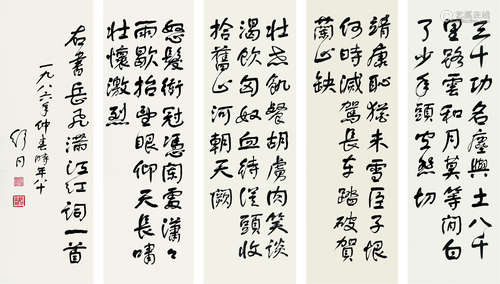 三十功名塵與土八千
里路雲和月莫等閒白
了少年頭空悲切
靖康恥猶未雪臣子恨
何時滅駕長車踏破賀
蘭山缺
壯志飢餐胡虜肉笑談
渴飲匈奴血待從頭收
拾舊山河朝天闕
怒髮衝冠憑闌處瀟々
雨歇抬望眼仰天長嘯
壯懷激烈
右書岳飛滿江紅詞一首
一九八六年仲春時年八十
舒同